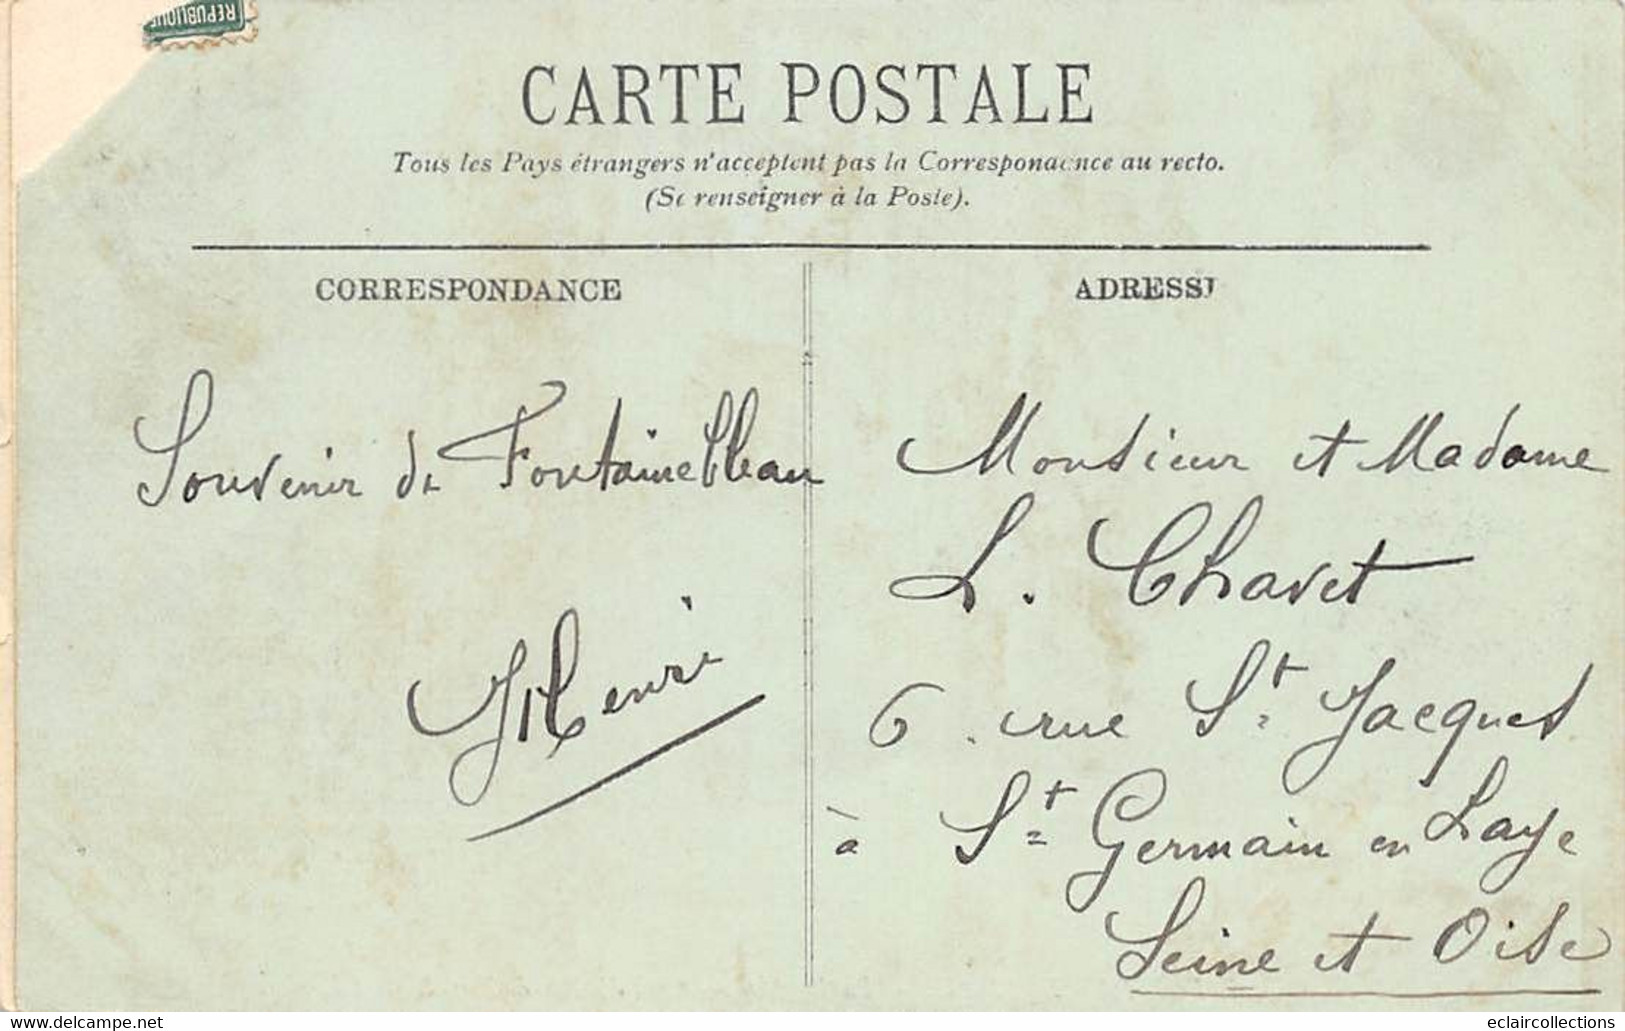 REPUBLIQUE
CARTE POSTALE
Tous les Pays étrangers n'acceptent pas la Correspondance au recto.
(Se renseigner à la Poste).
CORRESPONDANCE
Souvenir de Fontainebleau
Henri
ADRESSE
Monsieur et Madame
L. Chavet
6. rue St Jacques
à St Germain en Laye
Seine et Oise
www.delcampe.net
eclaircollections